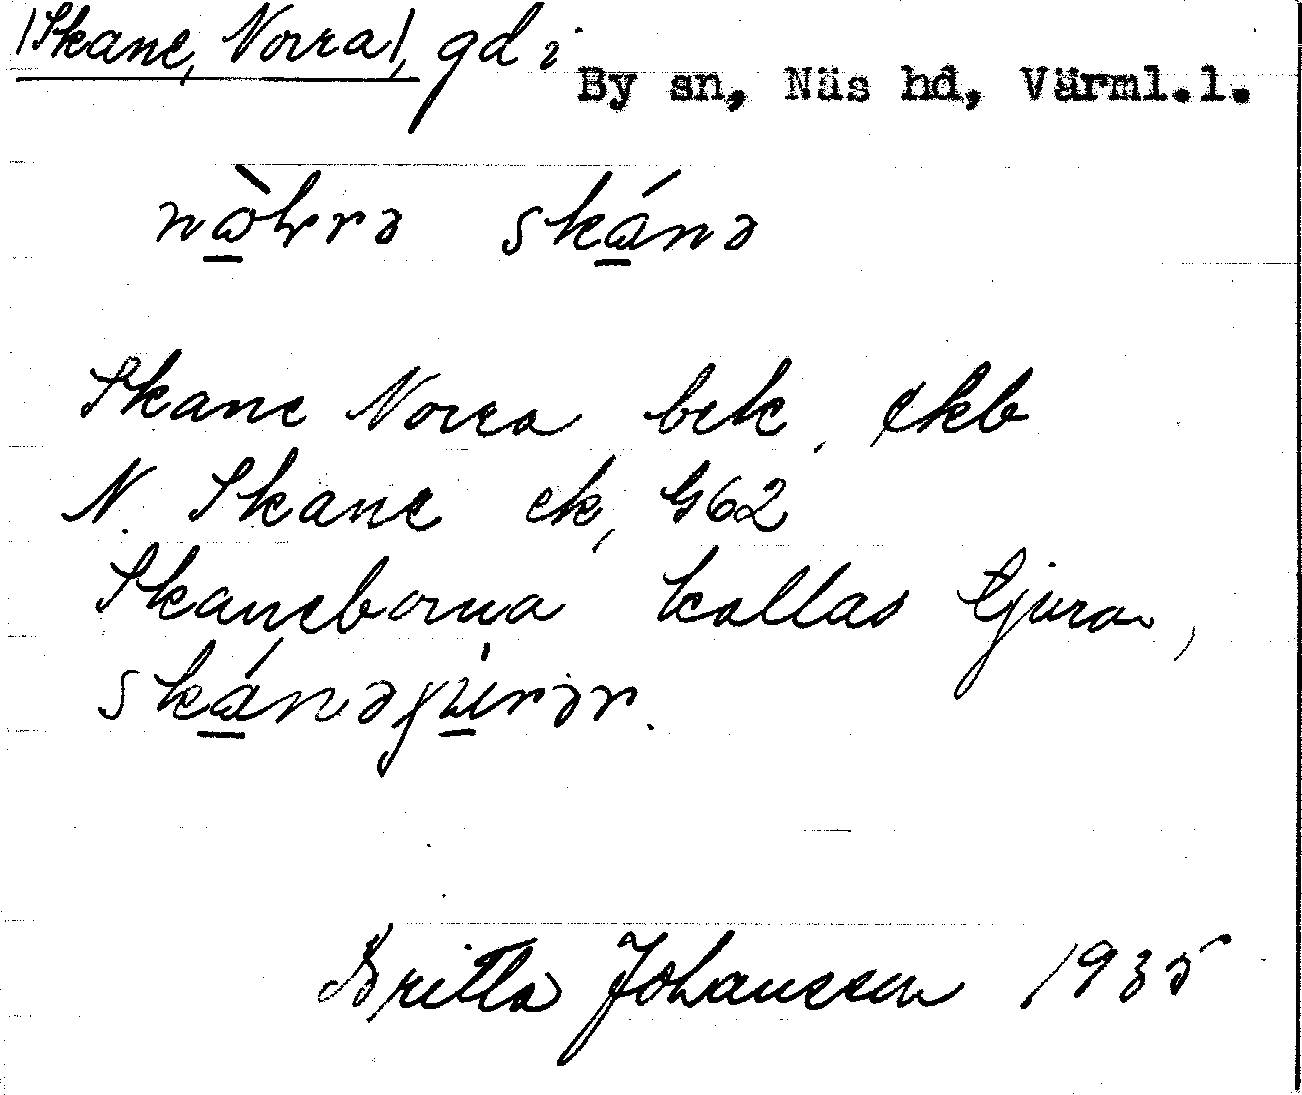 /Skane, Norra/, gd i By sn, Näs hd, Värml.l.
skánə
Skane Norra bek, ekb
N. Skane ek, G62
Skaneborna kallas tjurar,
Britta Johansson 1935